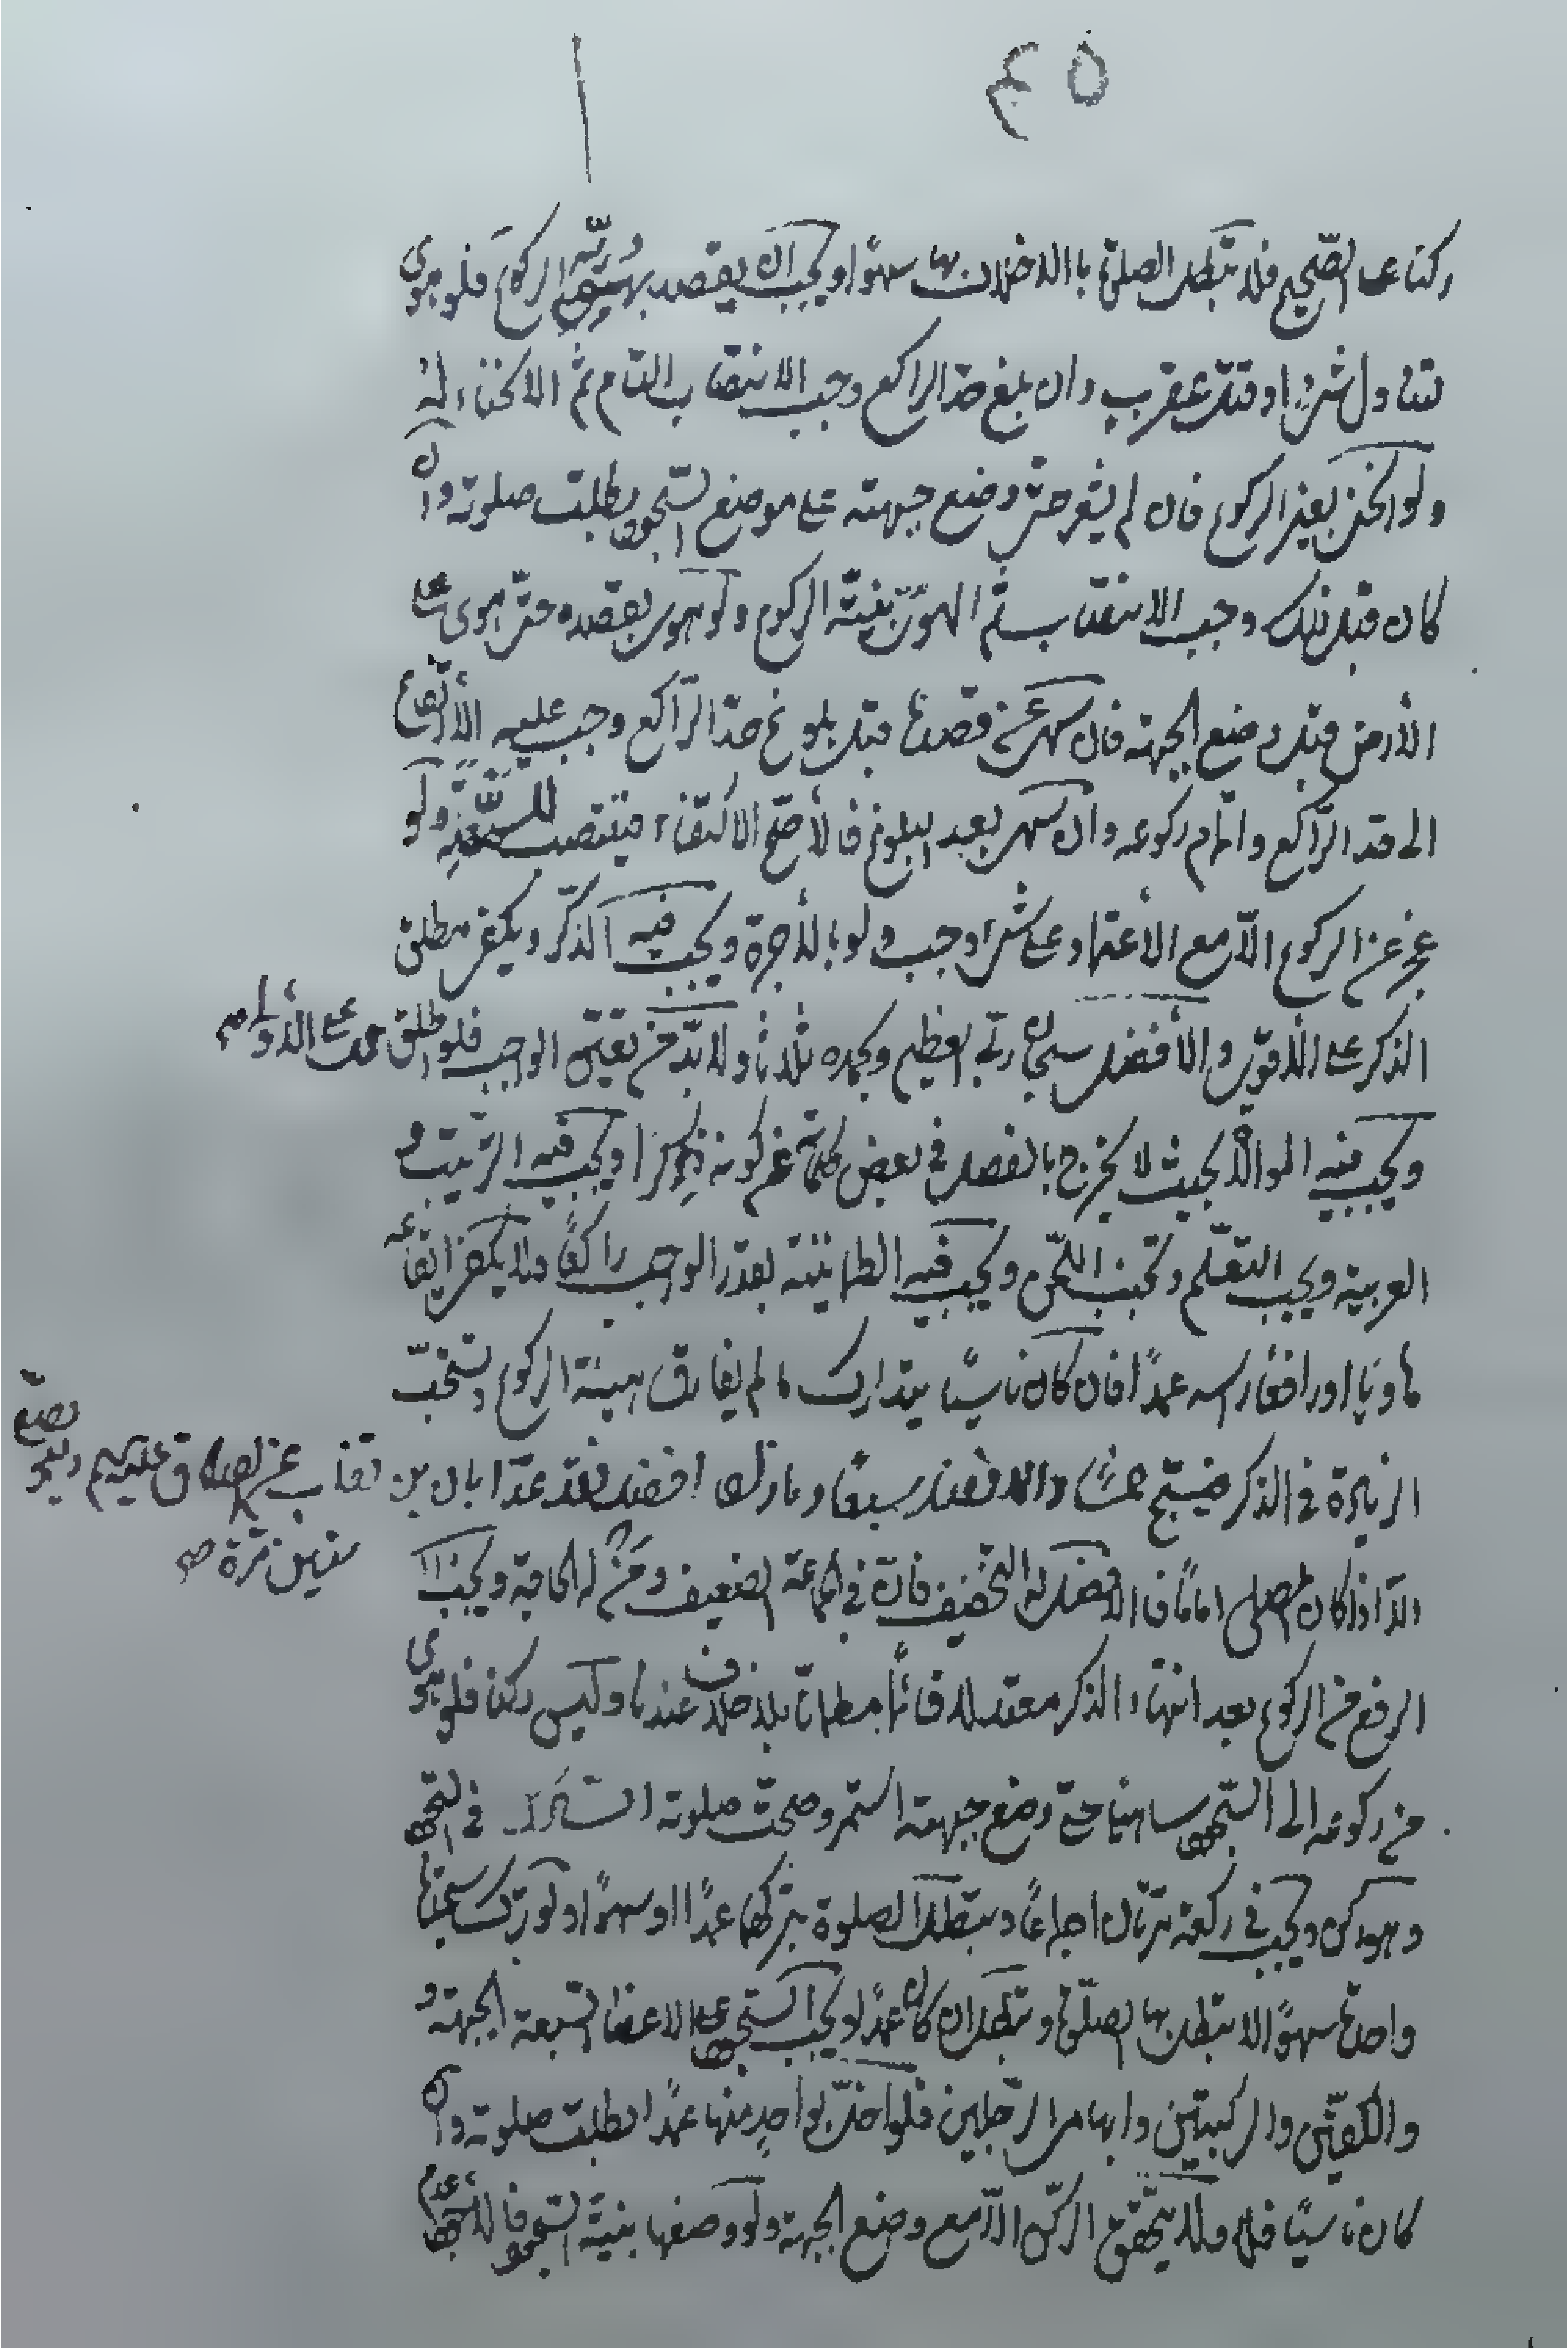 ٤٥
ركنا على الصحيح فلا تبطل الصلوة بالاخلال بها سهوا ويجب ان يقصد بهويه الركوع فلو هوى
لتناول شئ او قتل عقرب وان بلغ حد الراكع وجب الانتصاب التام ثم الانحناء له
ولو انحنى بغير الركوع فان لم يشعر حتى وضع جبهته على موضع السجود بطلت صلوته وان
كان قبل ذلك وجب الانتصاب ثم الهوى بنية الركوع ولو هوى بقصده حتى هوى على
الأرض قبل وضع الجبهة فان سهى عن قصدها قبل بلوغ حد الراكع وجب عليه الأرتفاع
الى حد الراكع واتمام ركوعه وان سهى بعد البلوغ فالأصح الاكتفاء فينتصب ولو
عجز عن الركوع الا مع الأعتماد على شئ وجب ولو بالأجرة ويجب فيه الذكر ويكفى مطلق
الذكر على الأقوى والأفضل سبحان ربى العظيم وبحمده ثلاثا ولا بد من تعيين الواجب فلو اطلق حمل على الأولى صح
ويجب فيه الموالاة بحيث لا يخرج بالفصل فى بعض كلماته عن كونه ذكرا ويجب فيه الترتيب و
العربية ويجب التعلم وتجنب اللحن ويجب فيه الطمانينة بقدر الواجب راكعا فلا يكفى ايقاعه
هاويا او رافعا رأسه عمدا فان كان ناسيا يتدارك ما لم يفارق هيئة الركوع ويستحب
الزيادة فى الذكر فيسبح خمسا والافضل سبعا وما زاد افضل فقد عد ابان بن تغلب عن الصادق عليه السلام
ستين مرة صح
الا اذا كان المصلى اماما فالافضل له التخفيف فان فى الجماعة الضعيف ومن له الحاجة ويجب
الرفع من الركوع بعد انتهاء الذكر معتدلا قائما مطمانا بلا خلاف عندنا وليس ركنا فلو هوى
من ركوعه الى السجود ساهيا حتى وضع جبهته استمر وصحت صلوته فى السجود
وهو ركن ويجب فى ركعة مرتان اجماعا وتبطل الصلوة بتركهما عمدا او سهوا ولو ترك سجدة
واحدة سهوا لا تبطل بها الصلوة وتبطل ان كان عمدا ويجب السجود على الاعضاء السبعة الجبهة و
والكفين والركبتين وابهامى الرجلين فلو اخل بواحد منها عمدا بطلت صلوته وان
كان ناسيا فلا ولا يتحقق الركن الا مع وضع الجبهة ولو وضعها بنية السجود